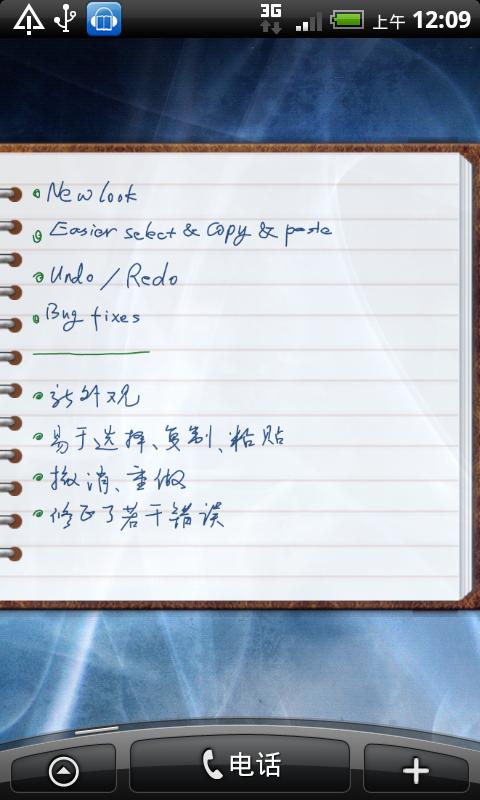 3G
上午 12:09
New look
Easier select & Copy & paste
Undo / Redo
Bug fixes
新外观
易于选择、复制、粘贴
撤消、重做
修正了若干错误
电话